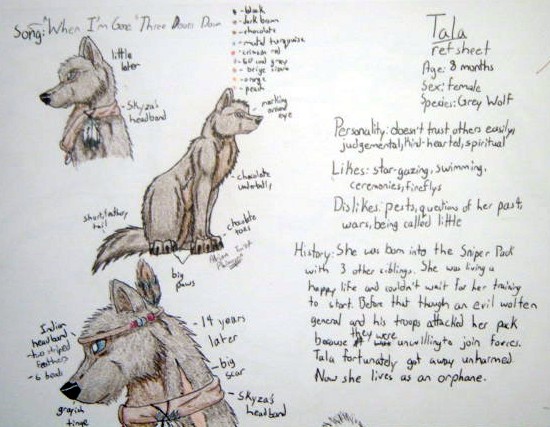 Song: "When I'm Gone" Three Doors Down
- black
- dark brown
- chocolate
- metal turquoise
- crimson red
- beige
- orange
- peach
little
later
- Skyza's
headband
marking
around
eye
- chocolate
underbelly
short, feathery
tail
- chocolate
toes
big
paws
Indian
headband
- two striped
feathers
- 6 beads
grayish
tinge
- 14 years
later
- big
scar
- Skyza's
headband
Tala
ref sheet
Age: 8 months
Sex: female
Species: Grey Wolf
Personality: doesn't trust others easily,
judgemental, kind-hearted, spiritual
Likes: star-gazing, swimming,
ceremonies, fireflys
Dislikes: pests, questions of her past,
wars, being called little
History: She was born into the Sniper Pack
with 3 other siblings. She was living a
happy life and couldn't wait for her training
to start. Before that though an evil wolten
general and his troops attacked her pack
because they were unwilling to join forces.
Tala fortunately got away unharmed.
Now she lives as an orphane.